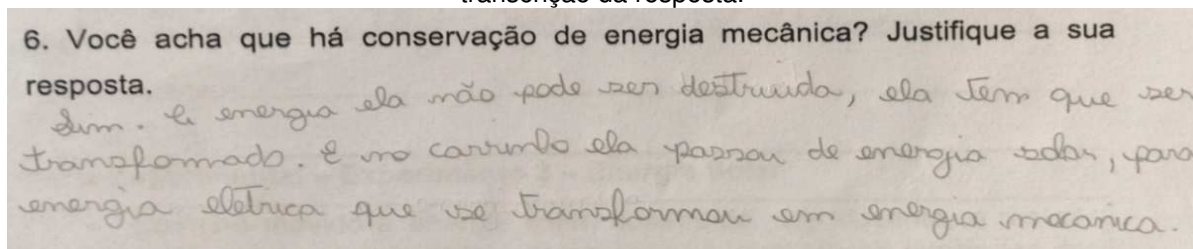 transcrição da resposta.
6. Você acha que há conservação de energia mecânica? Justifique a sua
resposta.
Sim. A energia ela não pode ser destruida, ela tem que ser
transformado. E no carrinho ela passou de energia solar, para
energia eletrica que se transformou em energia mecanica.